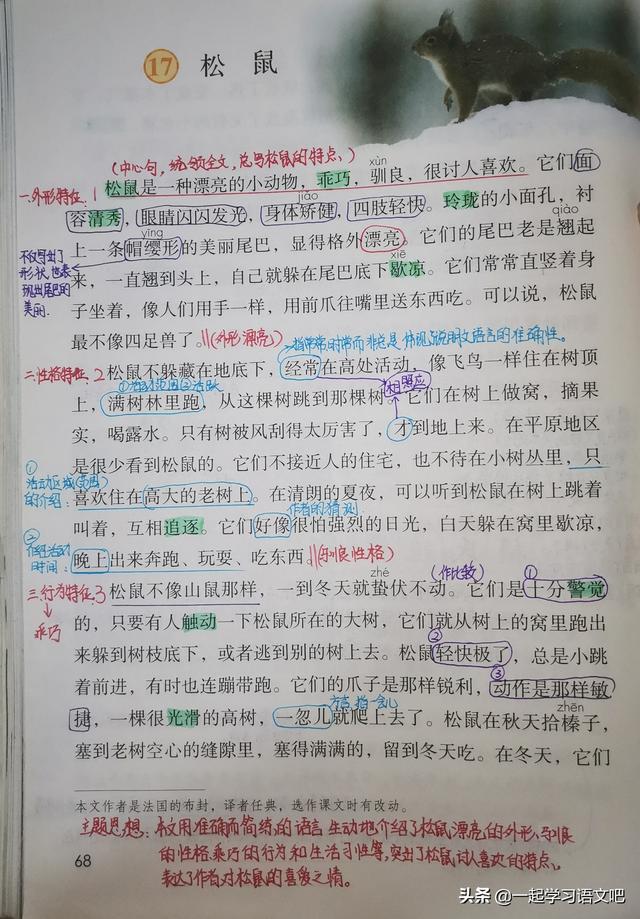 17 松鼠
(中心句，统领全文，总写松鼠的特点。)
xùn
一、外形特征：1 松鼠是一种漂亮的小动物，乖巧，驯良，很讨人喜欢。它们面
jiǎo
容清秀，眼睛闪闪发光，身体矫健，四肢轻快。玲珑的小面孔，衬
yīng qiào
上一条帽缨形的美丽尾巴，显得格外漂亮。它们的尾巴老是翘起
不仅写出了形状，也表现出尾巴的美丽。
xiē
来，一直翘到头上，自己就躲在尾巴底下歇凉。它们常常直竖着身
子坐着，像人们用手一样，用前爪往嘴里送东西吃。可以说，松鼠
最不像四足兽了。‖(外形漂亮)
指常常时常而非总是，体现了说明文语言的准确性。
二、性格特征：2 松鼠不躲藏在地底下，经常在高处活动，像飞鸟一样住在树顶
相照应
上，满树林里跑，从这棵树跳到那棵树。它们在树上做窝，摘果
实，喝露水。只有树被风刮得太厉害了，才到地上来。在平原地区
是很少看到松鼠的。它们不接近人的住宅，也不待在小树丛里，只
①活动区域(范围)的介绍：
喜欢住在高大的老树上。在清朗的夏夜，可以听到松鼠在树上跳着
作者的猜测
叫着，互相追逐。它们好像很怕强烈的日光，白天躲在窝里歇凉，
②介绍活动时间：
晚上出来奔跑、玩耍、吃东西。‖(驯良性格)
zhé (作比较) ①
三、行为特征：3 松鼠不像山鼠那样，一到冬天就蛰伏不动。它们是十分警觉
乖巧
的，只要有人触动一下松鼠所在的大树，它们就从树上的窝里跑出
②
来躲到树枝底下，或者逃到别的树上去。松鼠轻快极了，总是小跳
③
着前进，有时也连蹦带跑。它们的爪子是那样锐利，动作是那样敏
zhēn
捷，一棵很光滑的高树，一忽儿就爬上去了。松鼠在秋天拾榛子，
塞到老树空心的缝隙里，塞得满满的，留到冬天吃。在冬天，它们
本文作者是法国的布封，译者任典，选作课文时有改动。
主题思想：本文用准确而简练的语言生动地介绍了松鼠漂亮的外形、驯良
的性格、乖巧的行为和生活习性等，突出了松鼠讨人喜欢的特点，
表达了作者对松鼠的喜爱之情。
68
头条 @一起学习语文吧